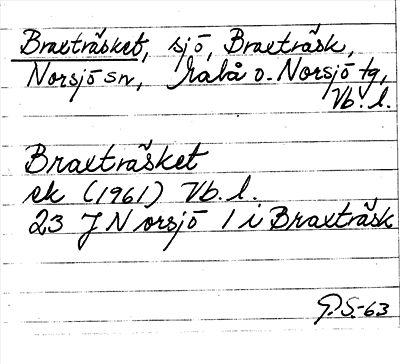 Braxträsket, sjö, Braxträsk,
Norsjö sn, Malå o. Norsjö tg,
Vb. l.
Braxträsket
ek (1961) Vb. l.
23 J Norsjö 1 i Braxträsk
G.S.-63